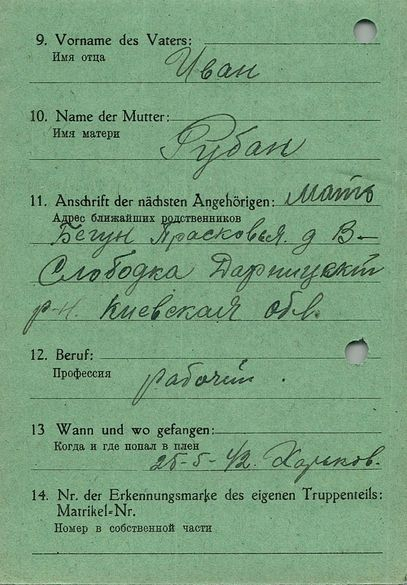 9. Vorname des Vaters:
Имя отца
Иван
10. Name der Mutter:
Имя матери
Рубан
11. Anschrift der nächsten Angehörigen: Мать
Адрес ближайших родственников
Бегун Прасковья. д В-
Слободка Дарницкий
р-н. Киевская обл.
12. Beruf:
Профессия
рабочий.
13 Wann und wo gefangen:
Когда и где попал в плен
25-5-42. Харьков.
14. Nr. der Erkennungsmarke des eigenen Truppenteils:
Matrikel-Nr.
Номер в собственной части